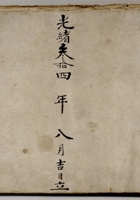 光緒叁拾四年八月吉日立